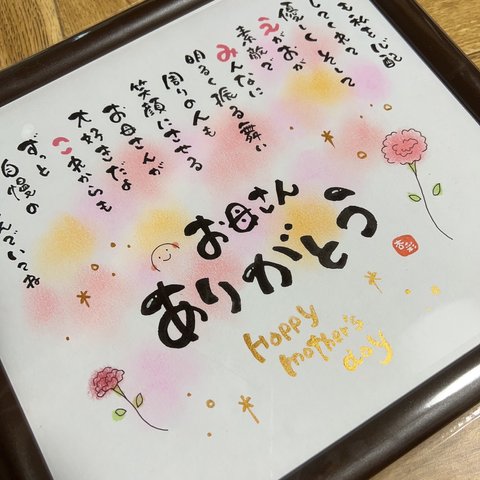 も私を心配
してくれて
優しくそして
えがおが
素敵で
みんなに
明るく振る舞い
周りの人も
笑顔にさせる
お母さんが
大好きだよ
これからも
ずっと
自慢の
んでいてね
お母さん
ありがとう
Happy
mother's
day